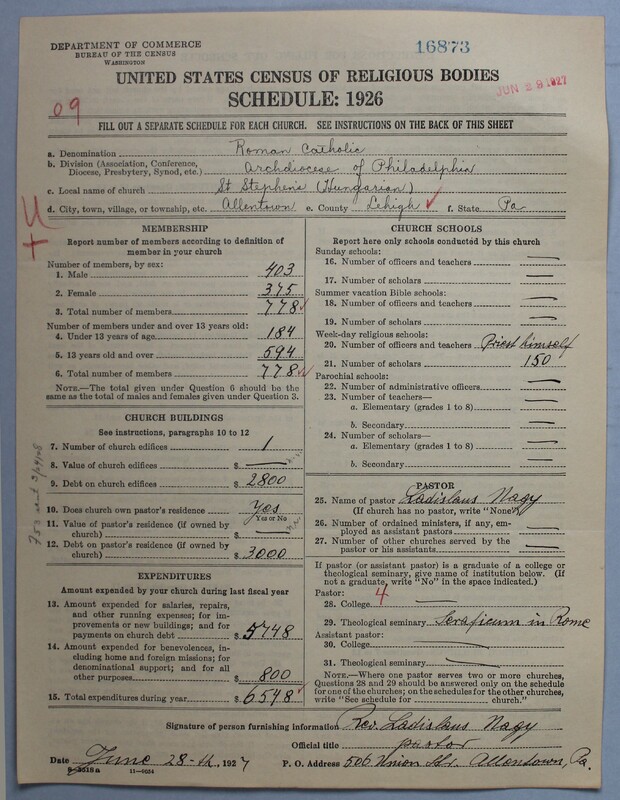 DEPARTMENT OF COMMERCE
BUREAU OF THE CENSUS
WASHINGTON
16873
UNITED STATES CENSUS OF RELIGIOUS BODIES
JUN 29 1927
SCHEDULE: 1926
09
FILL OUT A SEPARATE SCHEDULE FOR EACH CHURCH. SEE INSTRUCTIONS ON THE BACK OF THIS SHEET
a. Denomination Roman Catholic
b. Division (Association, Conference, Diocese, Presbytery, Synod, etc.) Archdiocese of Philadelphia
c. Local name of church St Stephen's (Hungarian)
d. City, town, village, or township, etc. Allentown e. County Lehigh ✓ f. State Pa
U
+
MEMBERSHIP
Report number of members according to definition of
member in your church
Number of members, by sex:
1. Male 403
2. Female 375
3. Total number of members 778 ✓
Number of members under and over 13 years old:
4. Under 13 years of age 184
5. 13 years old and over 594
6. Total number of members 778 ✓
NOTE.—The total given under Question 6 should be the
same as the total of males and females given under Question 3.
CHURCH BUILDINGS
See instructions, paragraphs 10 to 12
7. Number of church edifices 1
8. Value of church edifices $ —
9. Debt on church edifices $ 2800
10. Does church own pastor's residence Yes
Yes or No
11. Value of pastor's residence (if owned by
church) $ —
12. Debt on pastor's residence (if owned by
church) $ 3000
EXPENDITURES
Amount expended by your church during last fiscal year
13. Amount expended for salaries, repairs,
and other running expenses; for im-
provements or new buildings; and for
payments on church debt $ 5748
14. Amount expended for benevolences, in-
cluding home and foreign missions; for
denominational support; and for all
other purposes $ 800
15. Total expenditures during year $ 6548 ✓
CHURCH SCHOOLS
Report here only schools conducted by this church
Sunday schools:
16. Number of officers and teachers —
17. Number of scholars —
Summer vacation Bible schools:
18. Number of officers and teachers —
19. Number of scholars —
Week-day religious schools:
20. Number of officers and teachers Priest himself
21. Number of scholars 150
Parochial schools:
22. Number of administrative officers —
23. Number of teachers—
a. Elementary (grades 1 to 8) —
b. Secondary —
24. Number of scholars—
a. Elementary (grades 1 to 8) —
b. Secondary —
PASTOR
25. Name of pastor Ladislaus Nagy
(If church has no pastor, write "None")
26. Number of ordained ministers, if any, em-
ployed as assistant pastors —
27. Number of other churches served by the
pastor or his assistants —
If pastor (or assistant pastor) is a graduate of a college or
theological seminary, give name of institution below. (If
not a graduate, write "No" in the space indicated.)
Pastor: 4
28. College —
29. Theological seminary Seraficum in Rome
Assistant pastor:
30. College —
31. Theological seminary —
NOTE.—Where one pastor serves two or more churches,
Questions 28 and 29 should be answered only on the schedule
for one of the churches; on the schedules for the other churches,
write "See schedule for church."
Signature of person furnishing information Rev. Ladislaus Nagy
Official title pastor
Date June 28-th, 1927 P. O. Address 506 Union Str. Allentown, Pa.
8-3518a 11—9054